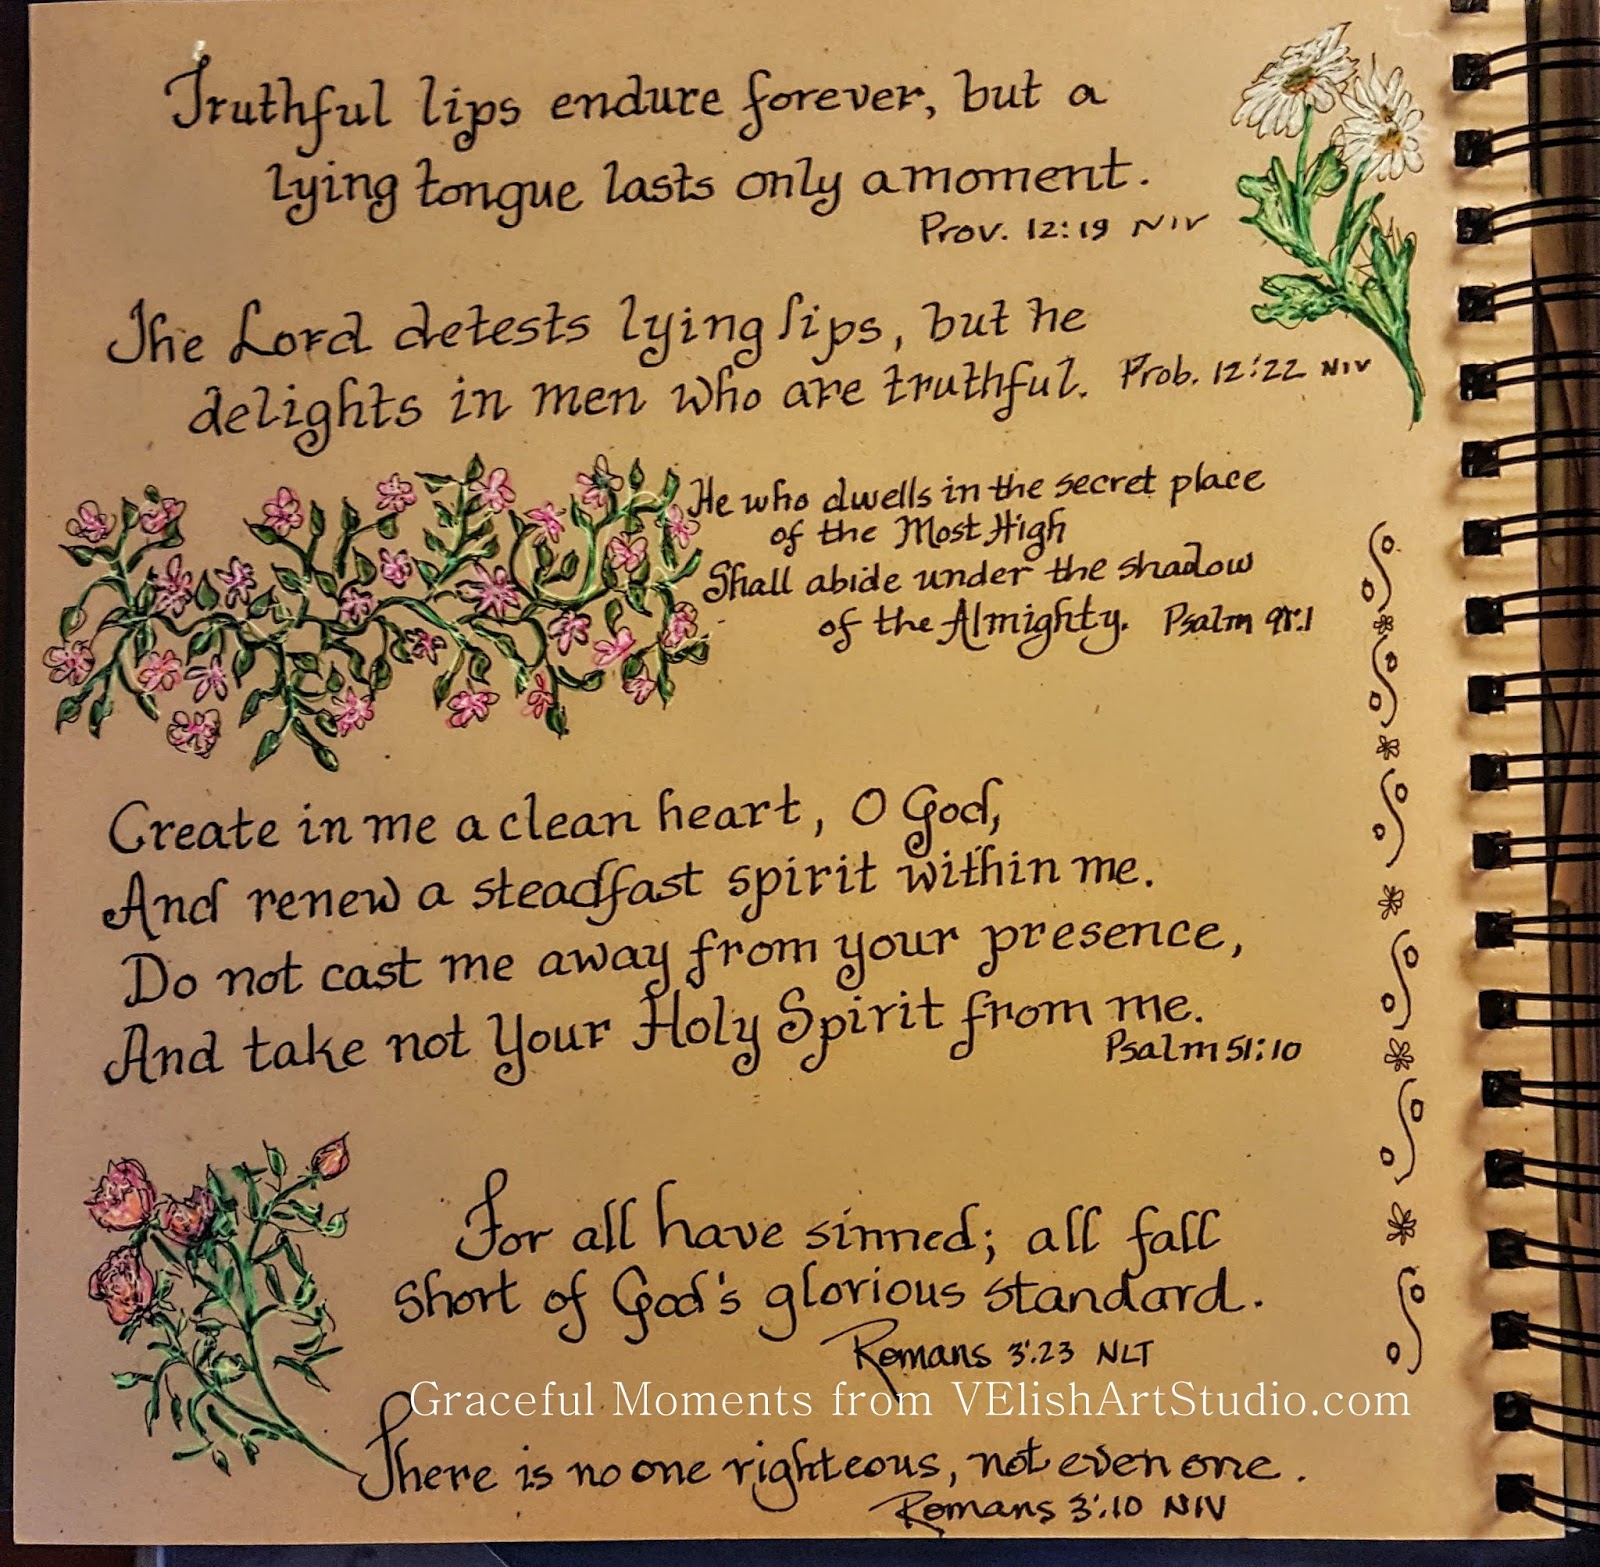 Truthful lips endure forever, but a
lying tongue lasts only a moment.
Prov. 12:19 NIV
The Lord detests lying lips, but he
delights in men who are truthful. Prob. 12:22 NIV
He who dwells in the secret place
of the Most High
Shall abide under the shadow
of the Almighty. Psalm 91:1
Create in me a clean heart, O God,
And renew a steadfast spirit within me.
Do not cast me away from your presence,
And take not Your Holy Spirit from me.
Psalm 51:10
For all have sinned; all fall
short of God's glorious standard.
Romans 3:23 NLT
Graceful Moments from VElishArtStudio.com
There is no one righteous, not even one.
Romans 3:10 NIV